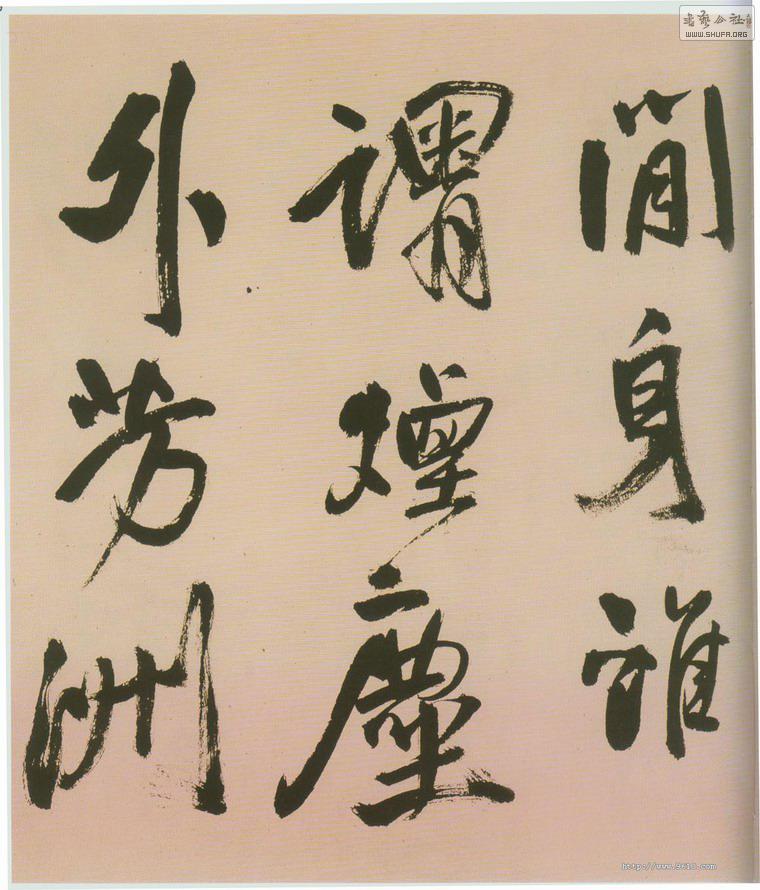 閒身誰
謂煙塵
外芳洲
書藝公社
WWW.SHUFA.ORG
http://www.9610.com